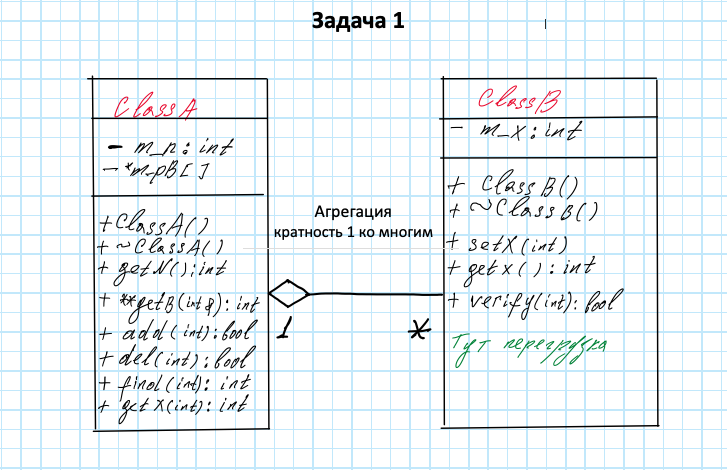 Задача 1
ClassA
- m_n : int
- *m_pB[]
+ ClassA()
+ ~ClassA()
+ getN() : int
+ **getB(int&) : int
+ add(int) : bool
+ del(int) : bool
+ find(int) : int
+ getX(int) : int
Агрегация
кратность 1 ко многим
1
*
ClassB
- m_x : int
+ ClassB()
+ ~ClassB()
+ setX(int)
+ getx() : int
+ verify(int) : bool
Тут перегрузка